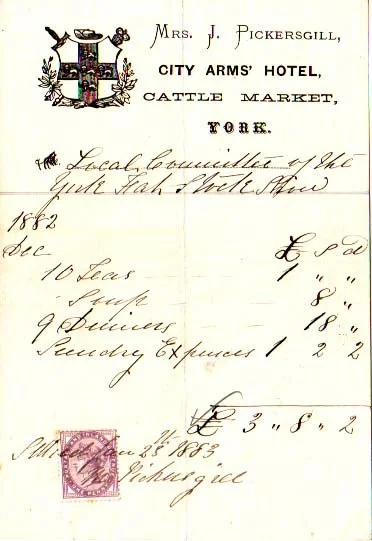 MRS. J. PICKERSGILL,
CITY ARMS' HOTEL,
CATTLE MARKET,
YORK.
The Local Committee of the
York Fat Stock Show
1882
Dec £ s d
10 Teas 1 " "
Soup 8 "
9 Dinners 18 "
Sundry Expences 1 2 2
£ 3 " 8 " 2
Settled Jan 23 1883
Pickersgill